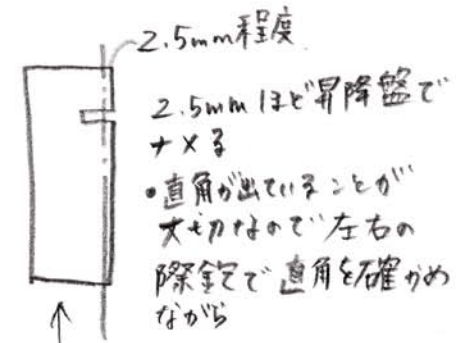 2.5mm程度
2.5mmほど昇降盤で
ナメる
・直角が出ていることが
大切なので左右の
際鉋で直角を確かめ
ながら